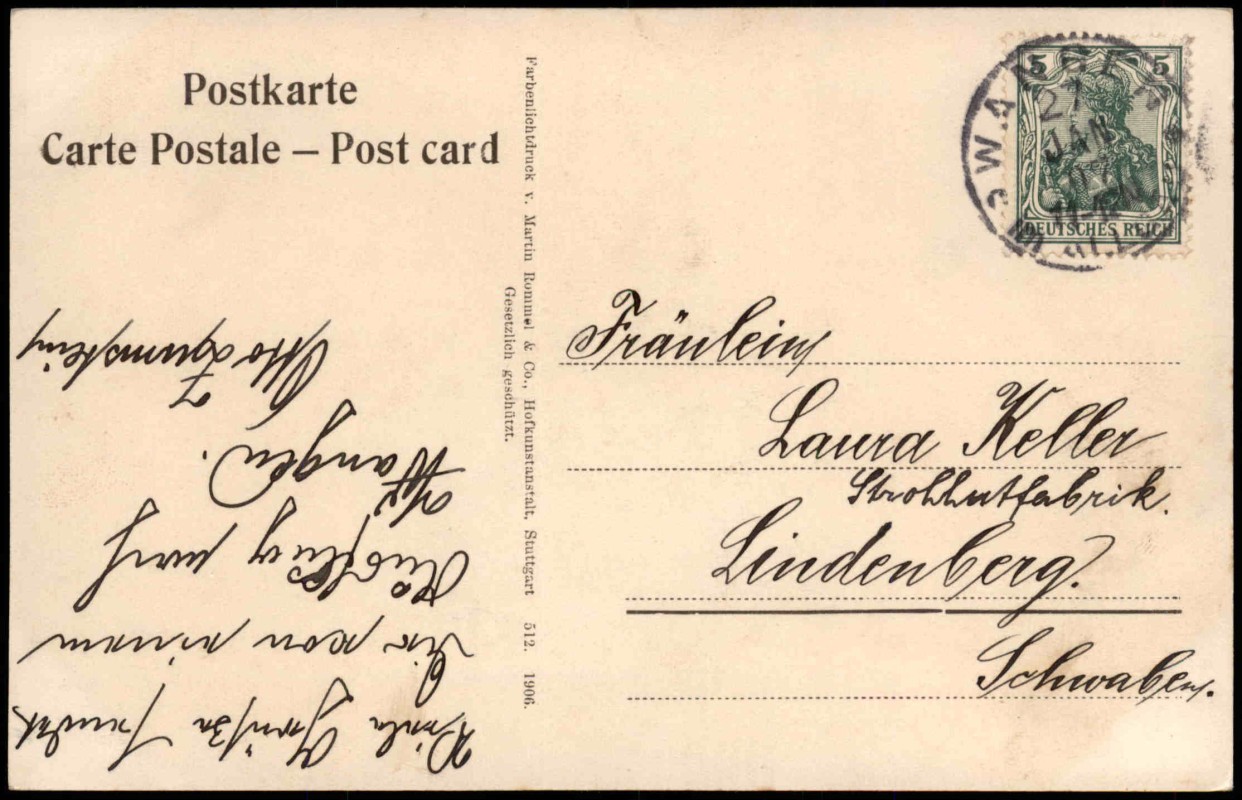 Postkarte
Carte Postale – Post card
Farbenlichtdruck v. Martin Rommel & Co., Hofkunstanstalt, Stuttgart 512. 1906.
Gesetzlich geschützt.
5 5
WANGEN
27
JAN
07
DEUTSCHES REICH
Fräulein
Laura Keller
Strohhutfabrik.
Lindenberg.
Schwaben.
Viele Grüße sendet
Dir von einem
Ausflug nach
Wangen.
Otto